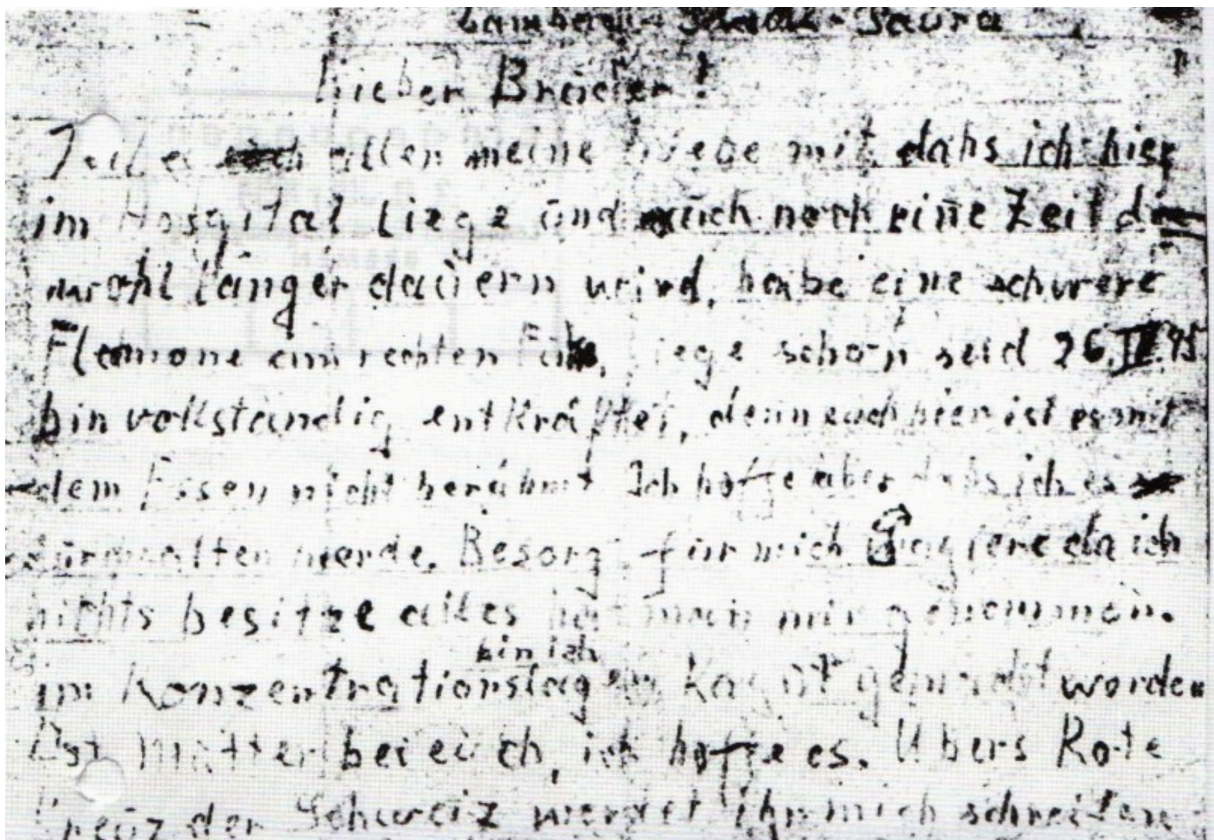 Lieber Brüder!
Teile allen meine mit dahs ich hier
im Hospital Liege ünd aüch noch eine Zeit die
wohl länger daüern wird, habe eine schwere
Flemone am rechten Fuhs, liege schon seid 26.IV.45
bin vollständig entkräftet, denn auch hier ist es mit
dem Essen nicht berühmt Ich hoffe aber dahs ich es
dürchhalten werde. Besorgt für mich Papiere da ich
nichts besitze alles hat man mir genommen.
im Konzentrationslager bin ich Kapüt gemacht worden
Ist Mütter bei euch, ich hoffe es. Übers Rote
Kreüz der Schweiz werdet ihr mich schreiben